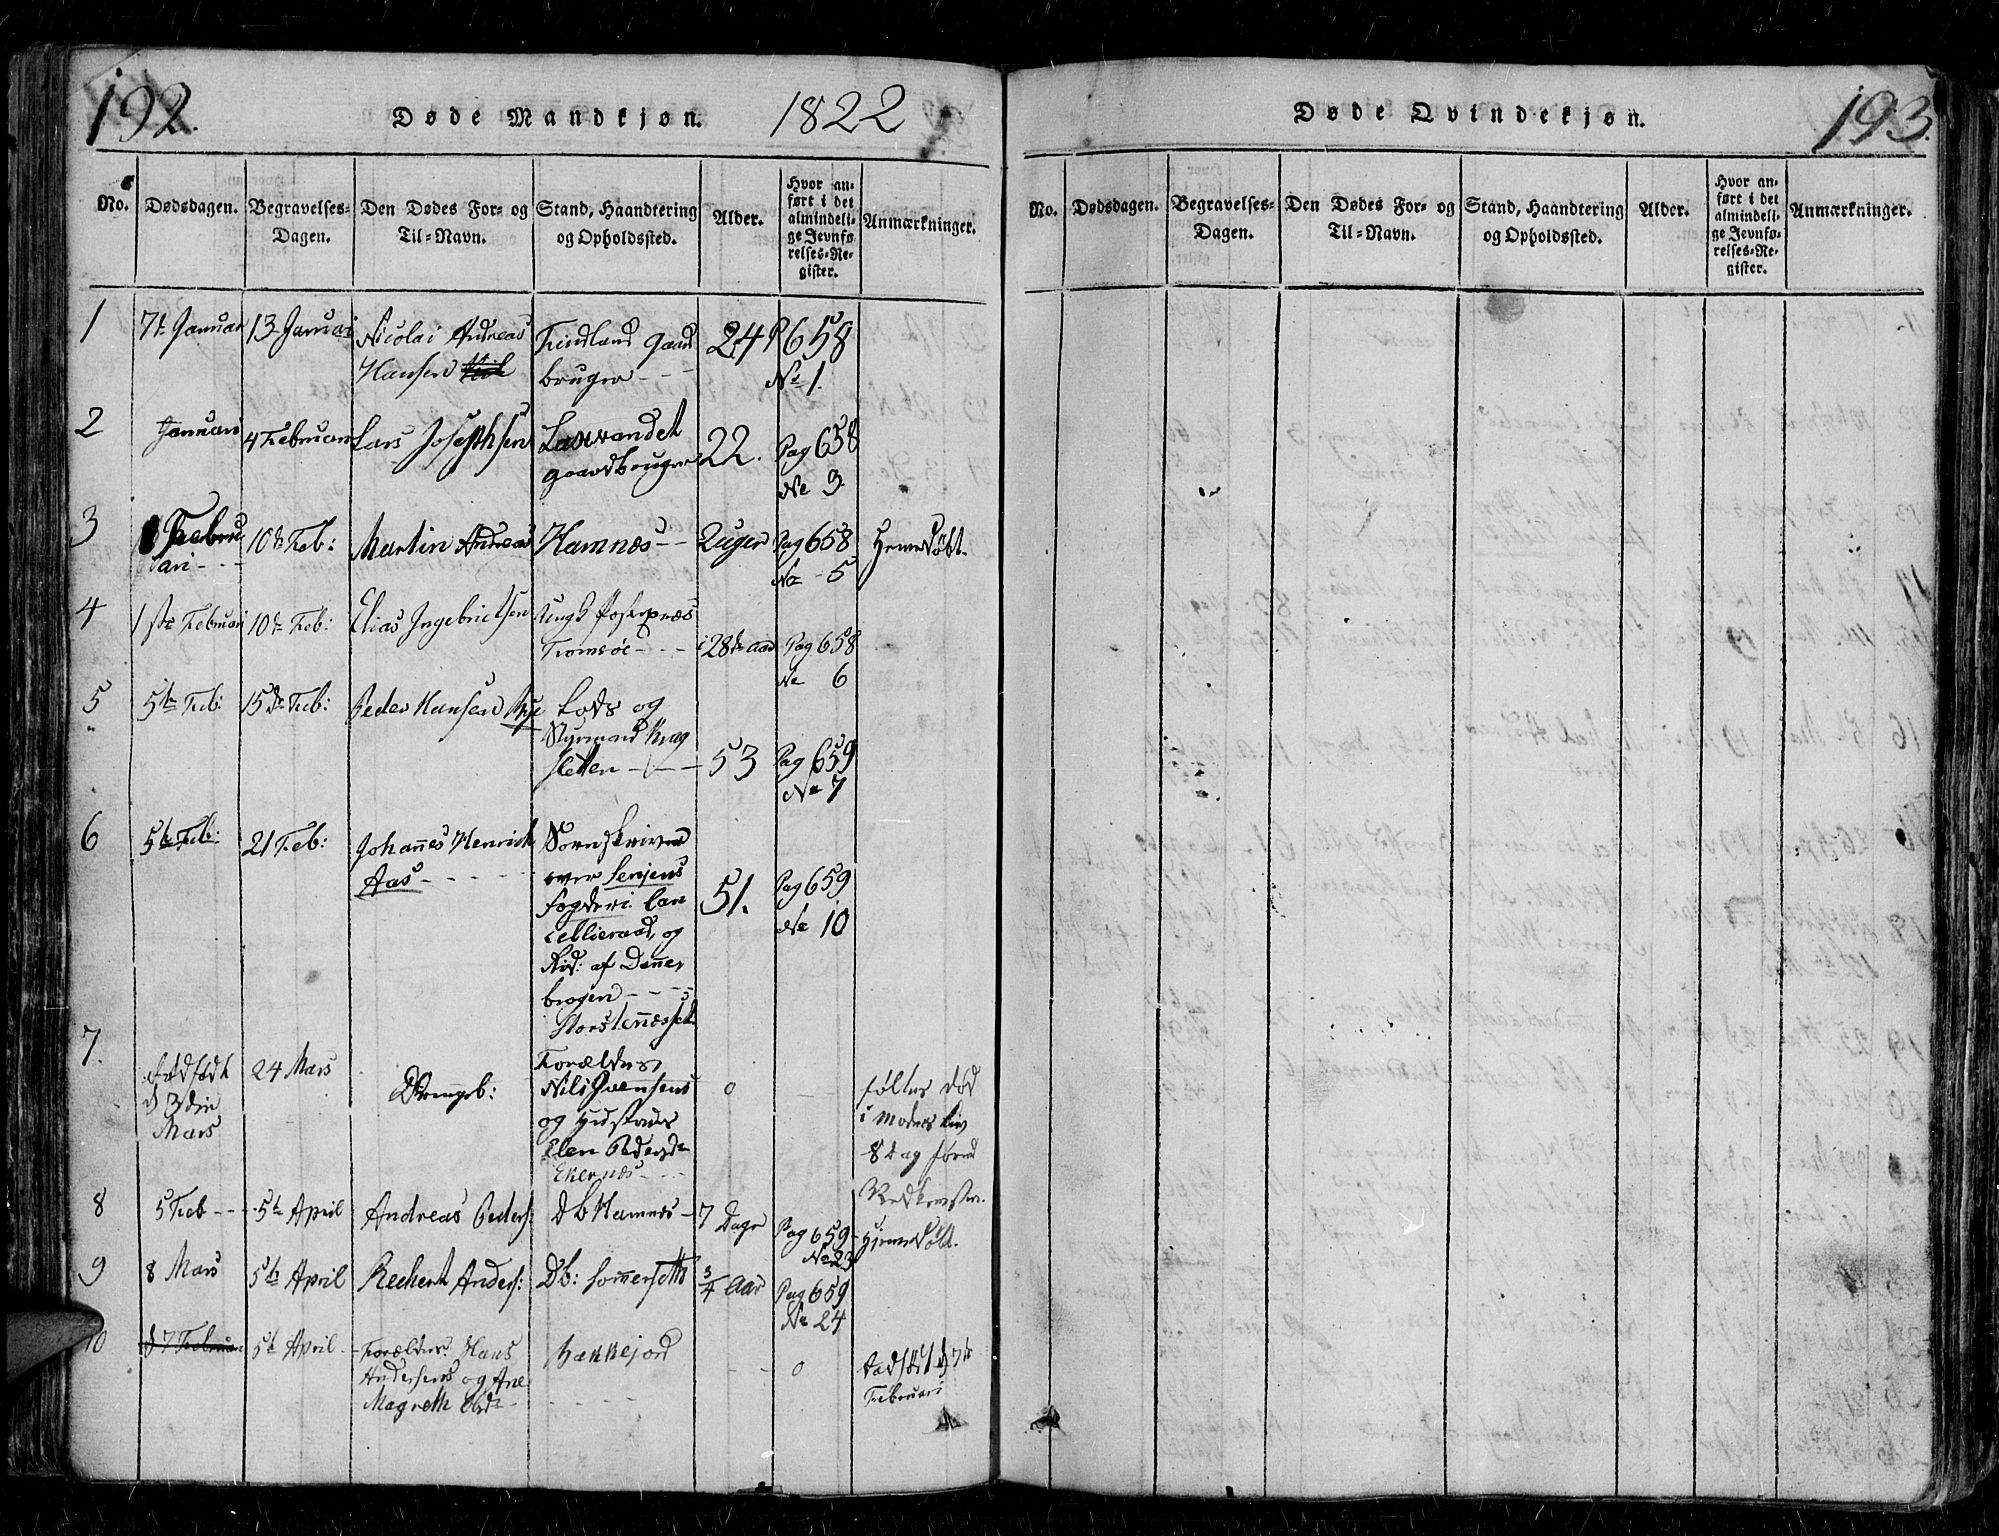 192.
Døde Mandkjøn.
1822
No.
Dødsdagen.
Begravelses-
Dagen.
Den Dødes For- og
Til-Navn.
Stand, Haandtering
og Opholdssted.
Alder.
Hvor an-
ført i det
almindeli-
ge Jevnfø-
relses-Re-
gister.
Anmærkninger.
1
7de Januar
13 Januari
Nicolai Andreas
Hansen
Findland gaard
bruger
24
P 658
No 1.
2
Januari
4 Februari
Lars Josephsen
Laxvandet
gaardbruger
22.
Pag 658
No 3.
3
Febru
ari
10de Feb:
Martin Andreas
Hamnes
2 uger
Pag 658
No 5
Hiemdøbt.
4
1ste Februari
10de Feb:
Elias Ingebrictsen
Ungk Postexpræs
Tromsøe
i 28de aar
Pag 658
No 6
5
5te Feb:
15de Feb:
Peder Hansen
Lods og
Styrmand Krog
sletten
53
Pag 659
No 7
6
5te Feb:
21 Feb:
Johannes Henrich
Aas
Sornskriver
over Senjens
fogderi Can
celliraad, og
Rid: af Danne
brogen
Storstennesset
51.
Pag 659
No 10
7.
dødfødt
d 3die
Mars
24 Mars
Drengeb:
Forældre
Nils Ivensens
og Hustrues
Elen Pedersd
Ekernæs
0
føltes død
i Moders liv
8 Dag førend
Nedkomsten.
8
5 Feb
5te April
Andreas Peders:
d b Hamnes
7 Dage
Pag 659
No 23
Hjemdøbt.
9
8 Mars
5te April
Rechert Anders:
Db: Sommersetth
3/4 Aar
Pag 659
No 24
10
d 7 Februari
5te April
Forældre: Hans
Andersens og Ane
Magreth Olsd
Bakkejord
0
dødfødt d 7de
Februari
Døde Qvindekjøn.
193.
No.
Dødsdagen.
Begravelses-
Dagen.
Den Dødes For- og
Til-Navn.
Stand, Haandtering
og Opholdssted.
Alder.
Hvor an-
ført i det
almindeli-
ge Jevnfø-
relses-Re-
gister.
Anmærkninger.